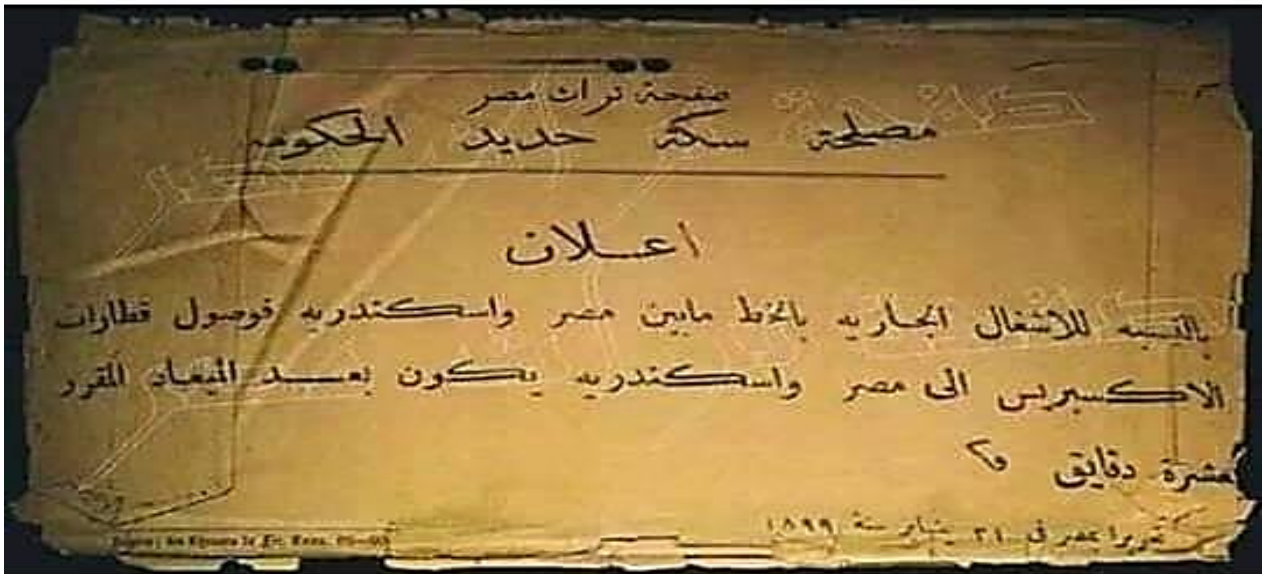 صفحة تراث مصر
مصلحة سكة حديد الحكومه
اعلان
بالنسبه للاشغال الجاريه بالخط مابين مصر واسكندريه فوصول قطارات
الاكسبريس الى مصر واسكندريه يكون بعد الميعاد المقرر
بعشرة دقايق
تحريرا بمصر فى ٢١ يناير سنة ١٨٩٩